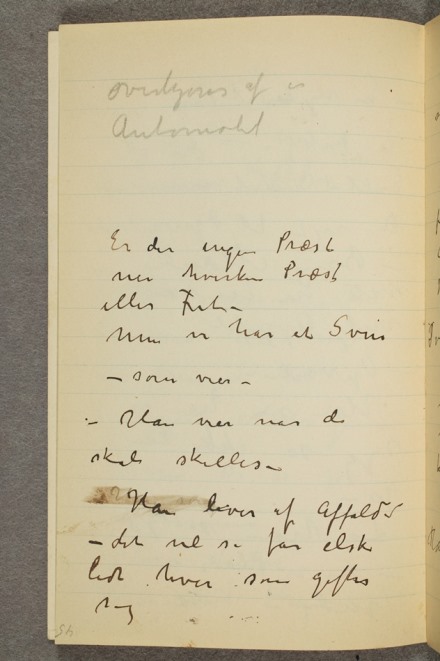 overkjøres af en
Automobil
Er der ingen Præst
nei hverken Præst
eller
Men vi har et Svin
– som vier –
– Han vier naar de
skal skilles –
Han lever af Affaldet
– det vil si før elsker
lidt hver som gifter
sig